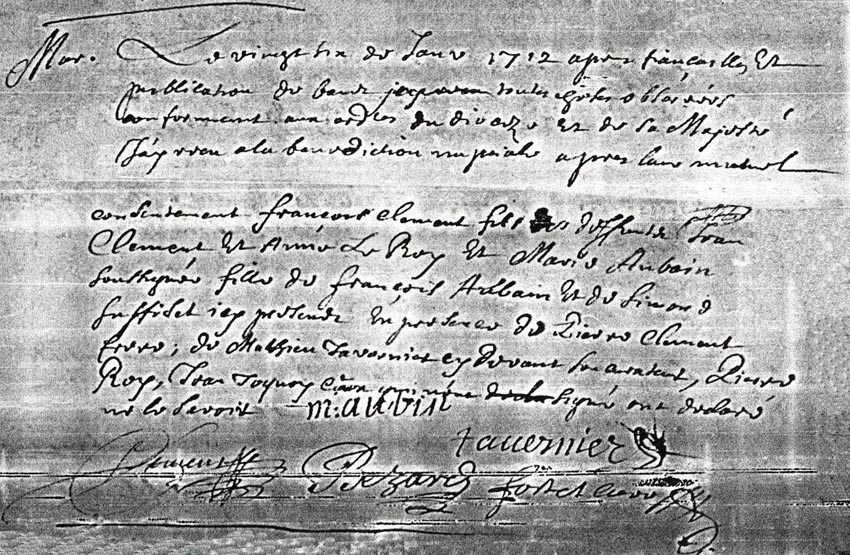 Mar. Le vingt six de Janv 1712 apres fiancailles Et
publication de bans toutes choses observées
conformement aux ordres du diocèze Et de Sa Majesté
Jay receu a la benediction nuptiale apres leur mutuel
consentement françois Clement fils des deffunts Jean
Clement Et Anne Le Roy Et Marie Aubain
soussignée fille de françois Aubain Et de Simone
icy presents En presence de Pierre Clement
frere, de Mathieu Tavernier cy devant, Pierre
Roy, Jean signé ont declaré
ne le Savoir m. aubin
tavernier
Clement Bezard curé